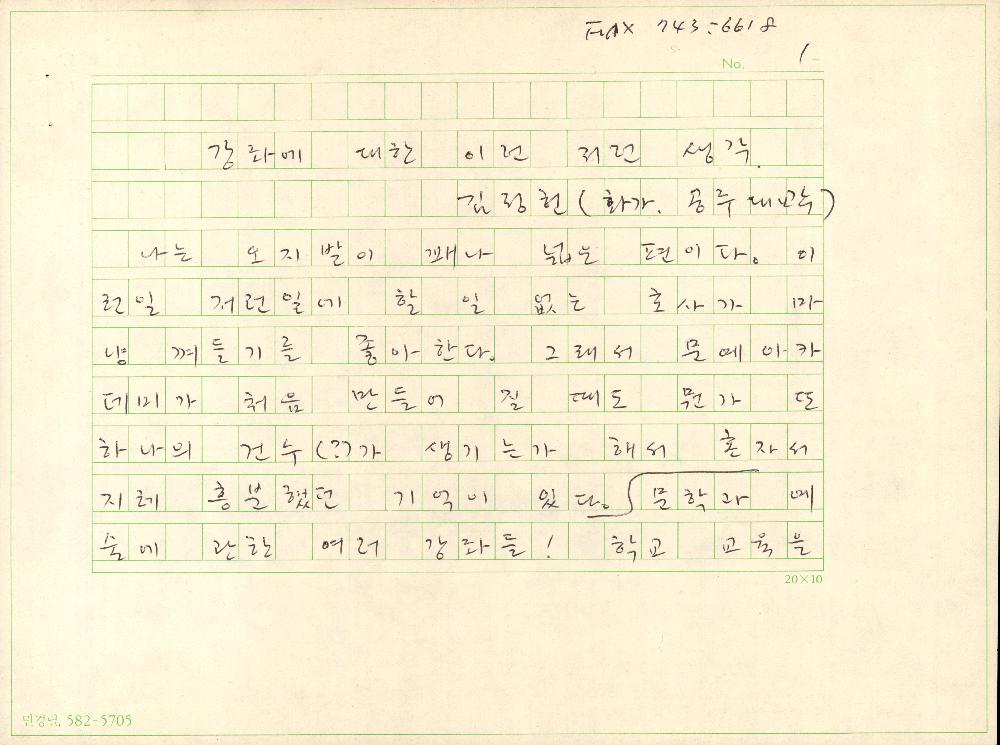 FAX 743-6618
No. 1
강좌에 대한 이런 저런 생각.
김정헌(화가. 공주대교수)
나는 오지발이 꽤나 넓은 편이다. 이
런일 저런일에 할 일 없는 호사가 마
냥 껴들기를 좋아한다. 그래서 문예아카
데미가 처음 만들어 질 때도 뭔가 또
하나의 건수(??)가 생기는가 해서 혼자서
지레 흥분했던 기억이 있다. 문학과 예
술에 관한 여러 강좌들! 학교 교육을
20×10
민경난. 582-5705